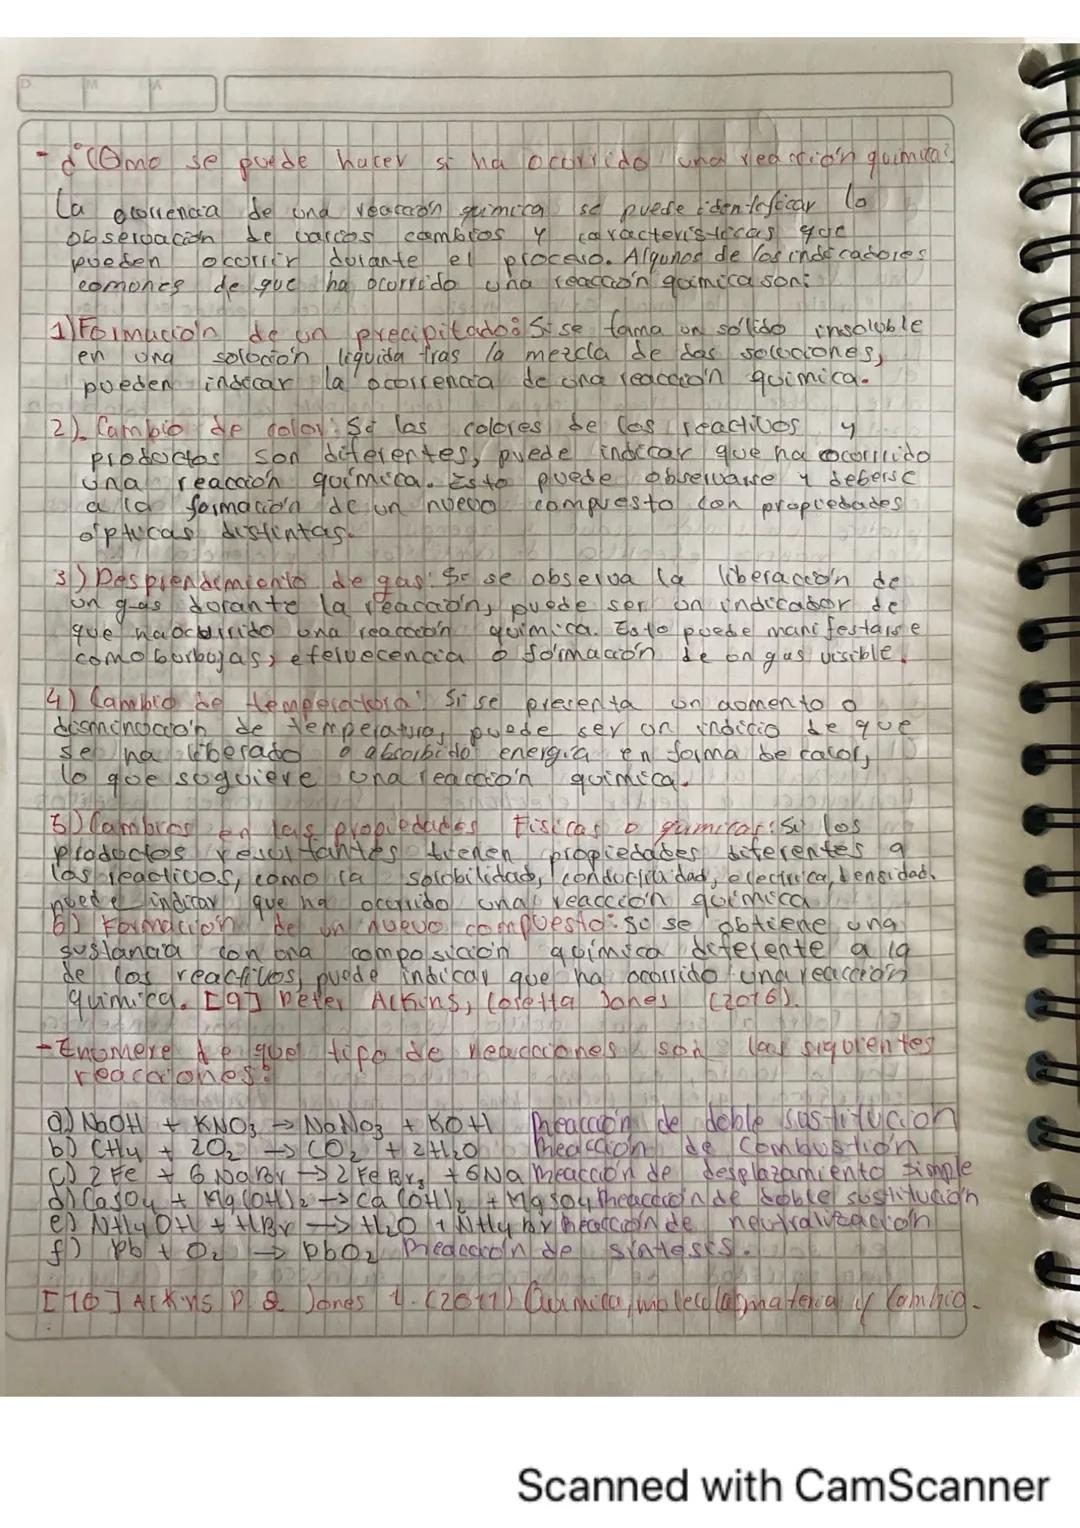 D M A
- ¿Cómo se puede hacer si ha ocurrido una reacción quimica?
La ocorrencia de una reacción quimica se puede identificar la
observación de varios cambios y caracteristicas que
pueden ocorrir durante el proceso. Algunos de los indicadores
comones de que ha ocorrido una reacción quimica son:
1) Formución de un precipitado: Si se foma un sólido insoluble
en una solución liquida tras la mezcla de dos soluciones,
pueden indicar la ocorrencia de una reacción química.
2) Cambio de color: Si los colores de los reactivos y
productos son diferentes, puede indicar que ha ocorrido
una reacción química. Esto puede observarse y deberse
a la formación de un nuevo compuesto con propiedades
ópticas distintas.
3) Desprendimiento de gas: Si se observa la liberación de
un gas dorante la reacción, puede ser un indicador de
que ha ocurrido una reacción química. Esto puede manifestarse
como burbujas, efervecencia o formación de un gas visible.
4) Cambio de temperatora: Si se presenta un aomento o
disminución de temperatura, puede ser un indicio de que
se ha liberado o absorbido energia en forma de calor,
lo que suguiere una reacción química.
5) Cambios en las propiedades fisicas o quimicas: Si los
productos resultantes tienen propiedades diferentes a
los reactivos, como la solobilidad, conductividad, electrica, densidad.
puede indicar que ha ocorrido una reacción química
6) Formación de un nuevo compuesto: Si se obtiene una
sustancia con una composición química diferente a la
de los reactivos, puede indicar que ha ocorrido una reacción
química. [9] Peter Atkins, Loretta Jones (2016).
- Enomere de que tipo de reacciones son las siguientes
reacciones:
a) NaOH + KNO3 → NaNo3 + KOH Reacción de doble sustitución
b) CH4 + 2O2 → CO2 + 2H2O Reacción de combustión
c) 2Fe + 6NaBr → 2FeBr3 + 6Na Reacción de desplazamiento simple
d) CaSO4 + Mg(OH)2 → Ca(OH)2 + MgSO4 Reacción de doble sustitución
e) NH4OH + HBr → H2O + NH4Br Reacción de neutralización
f) Pb + O2 → PbO2 Reacción de sintesis.
[10] Atkins P. & Jones L. (2012) Quimica, molecolas, materia y Cambio.
Scanned with CamScanner